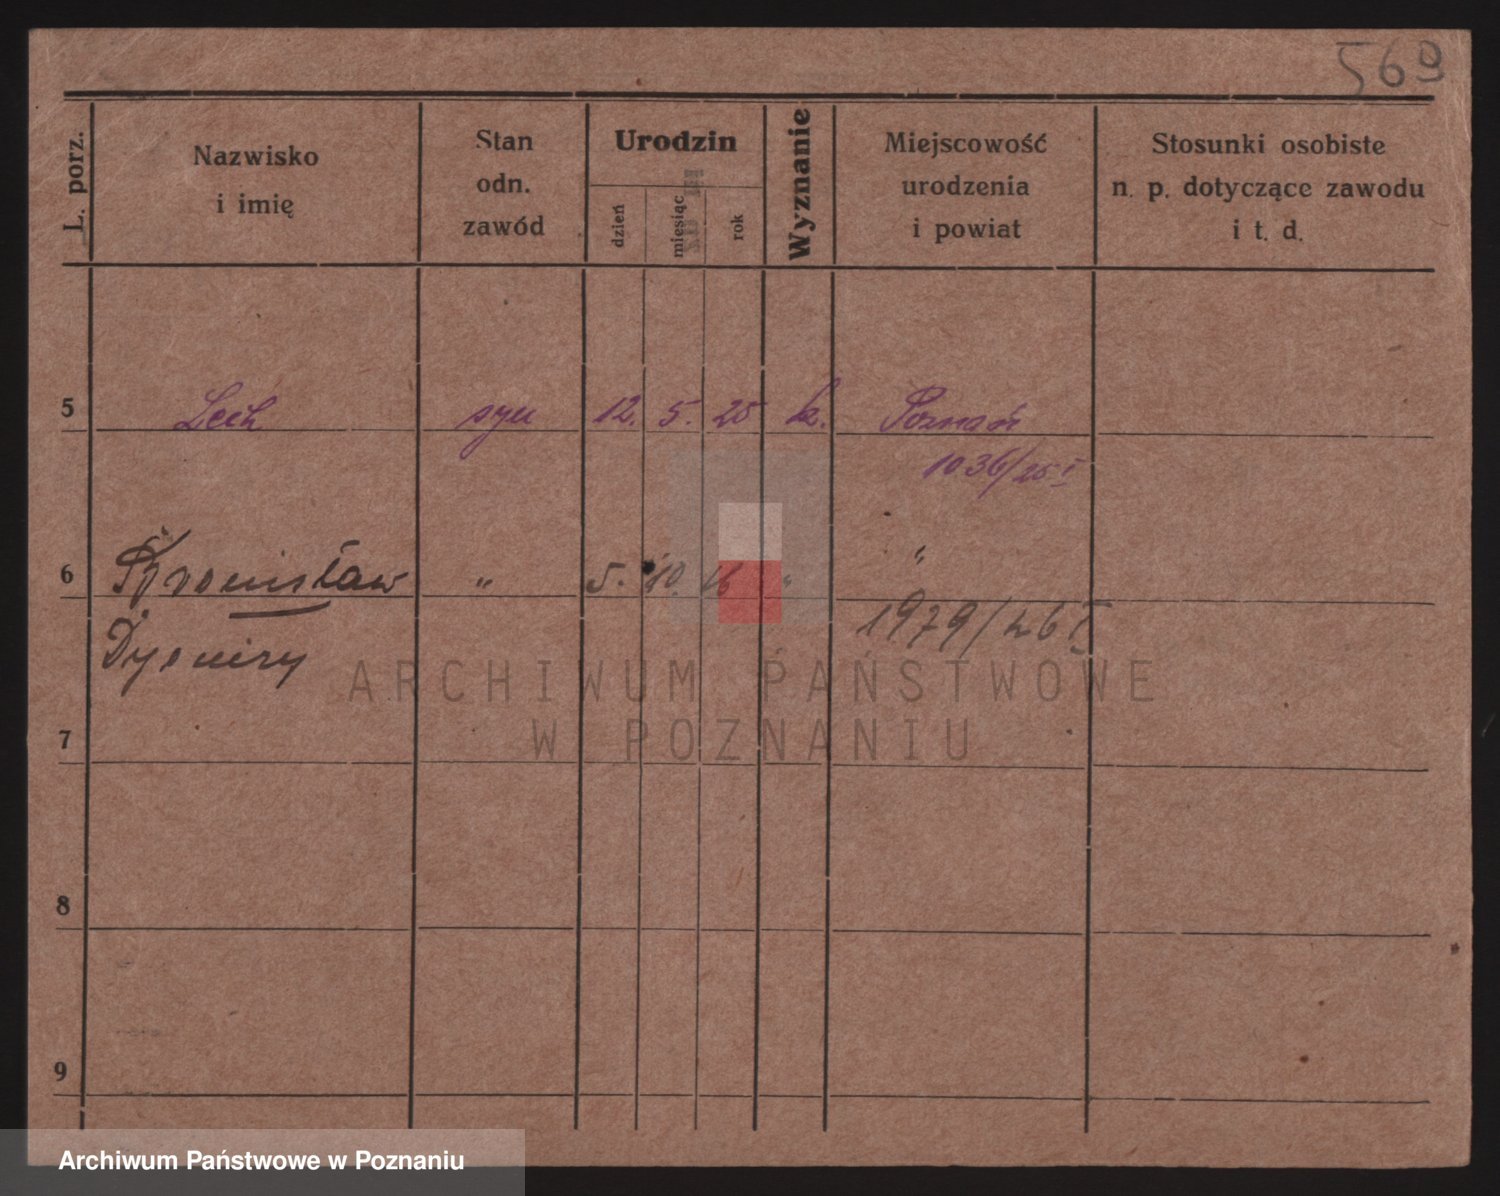 569
L. porz.
Nazwisko
i imię
Stan
odn.
zawód
Urodzin
dzień
miesiąc
rok
Wyznanie
Miejscowość
urodzenia
i powiat
Stosunki osobiste
n. p. dotyczące zawodu
i t. d.
5 Lech syn 12. 5. 25 k. Poznań
1036/25 I
6 Bronisław " 5. 10. " "
Dyonizy 1979/26 I
ARCHIWUM PAŃSTWOWE
W POZNANIU
7
8
9
Archiwum Państwowe w Poznaniu